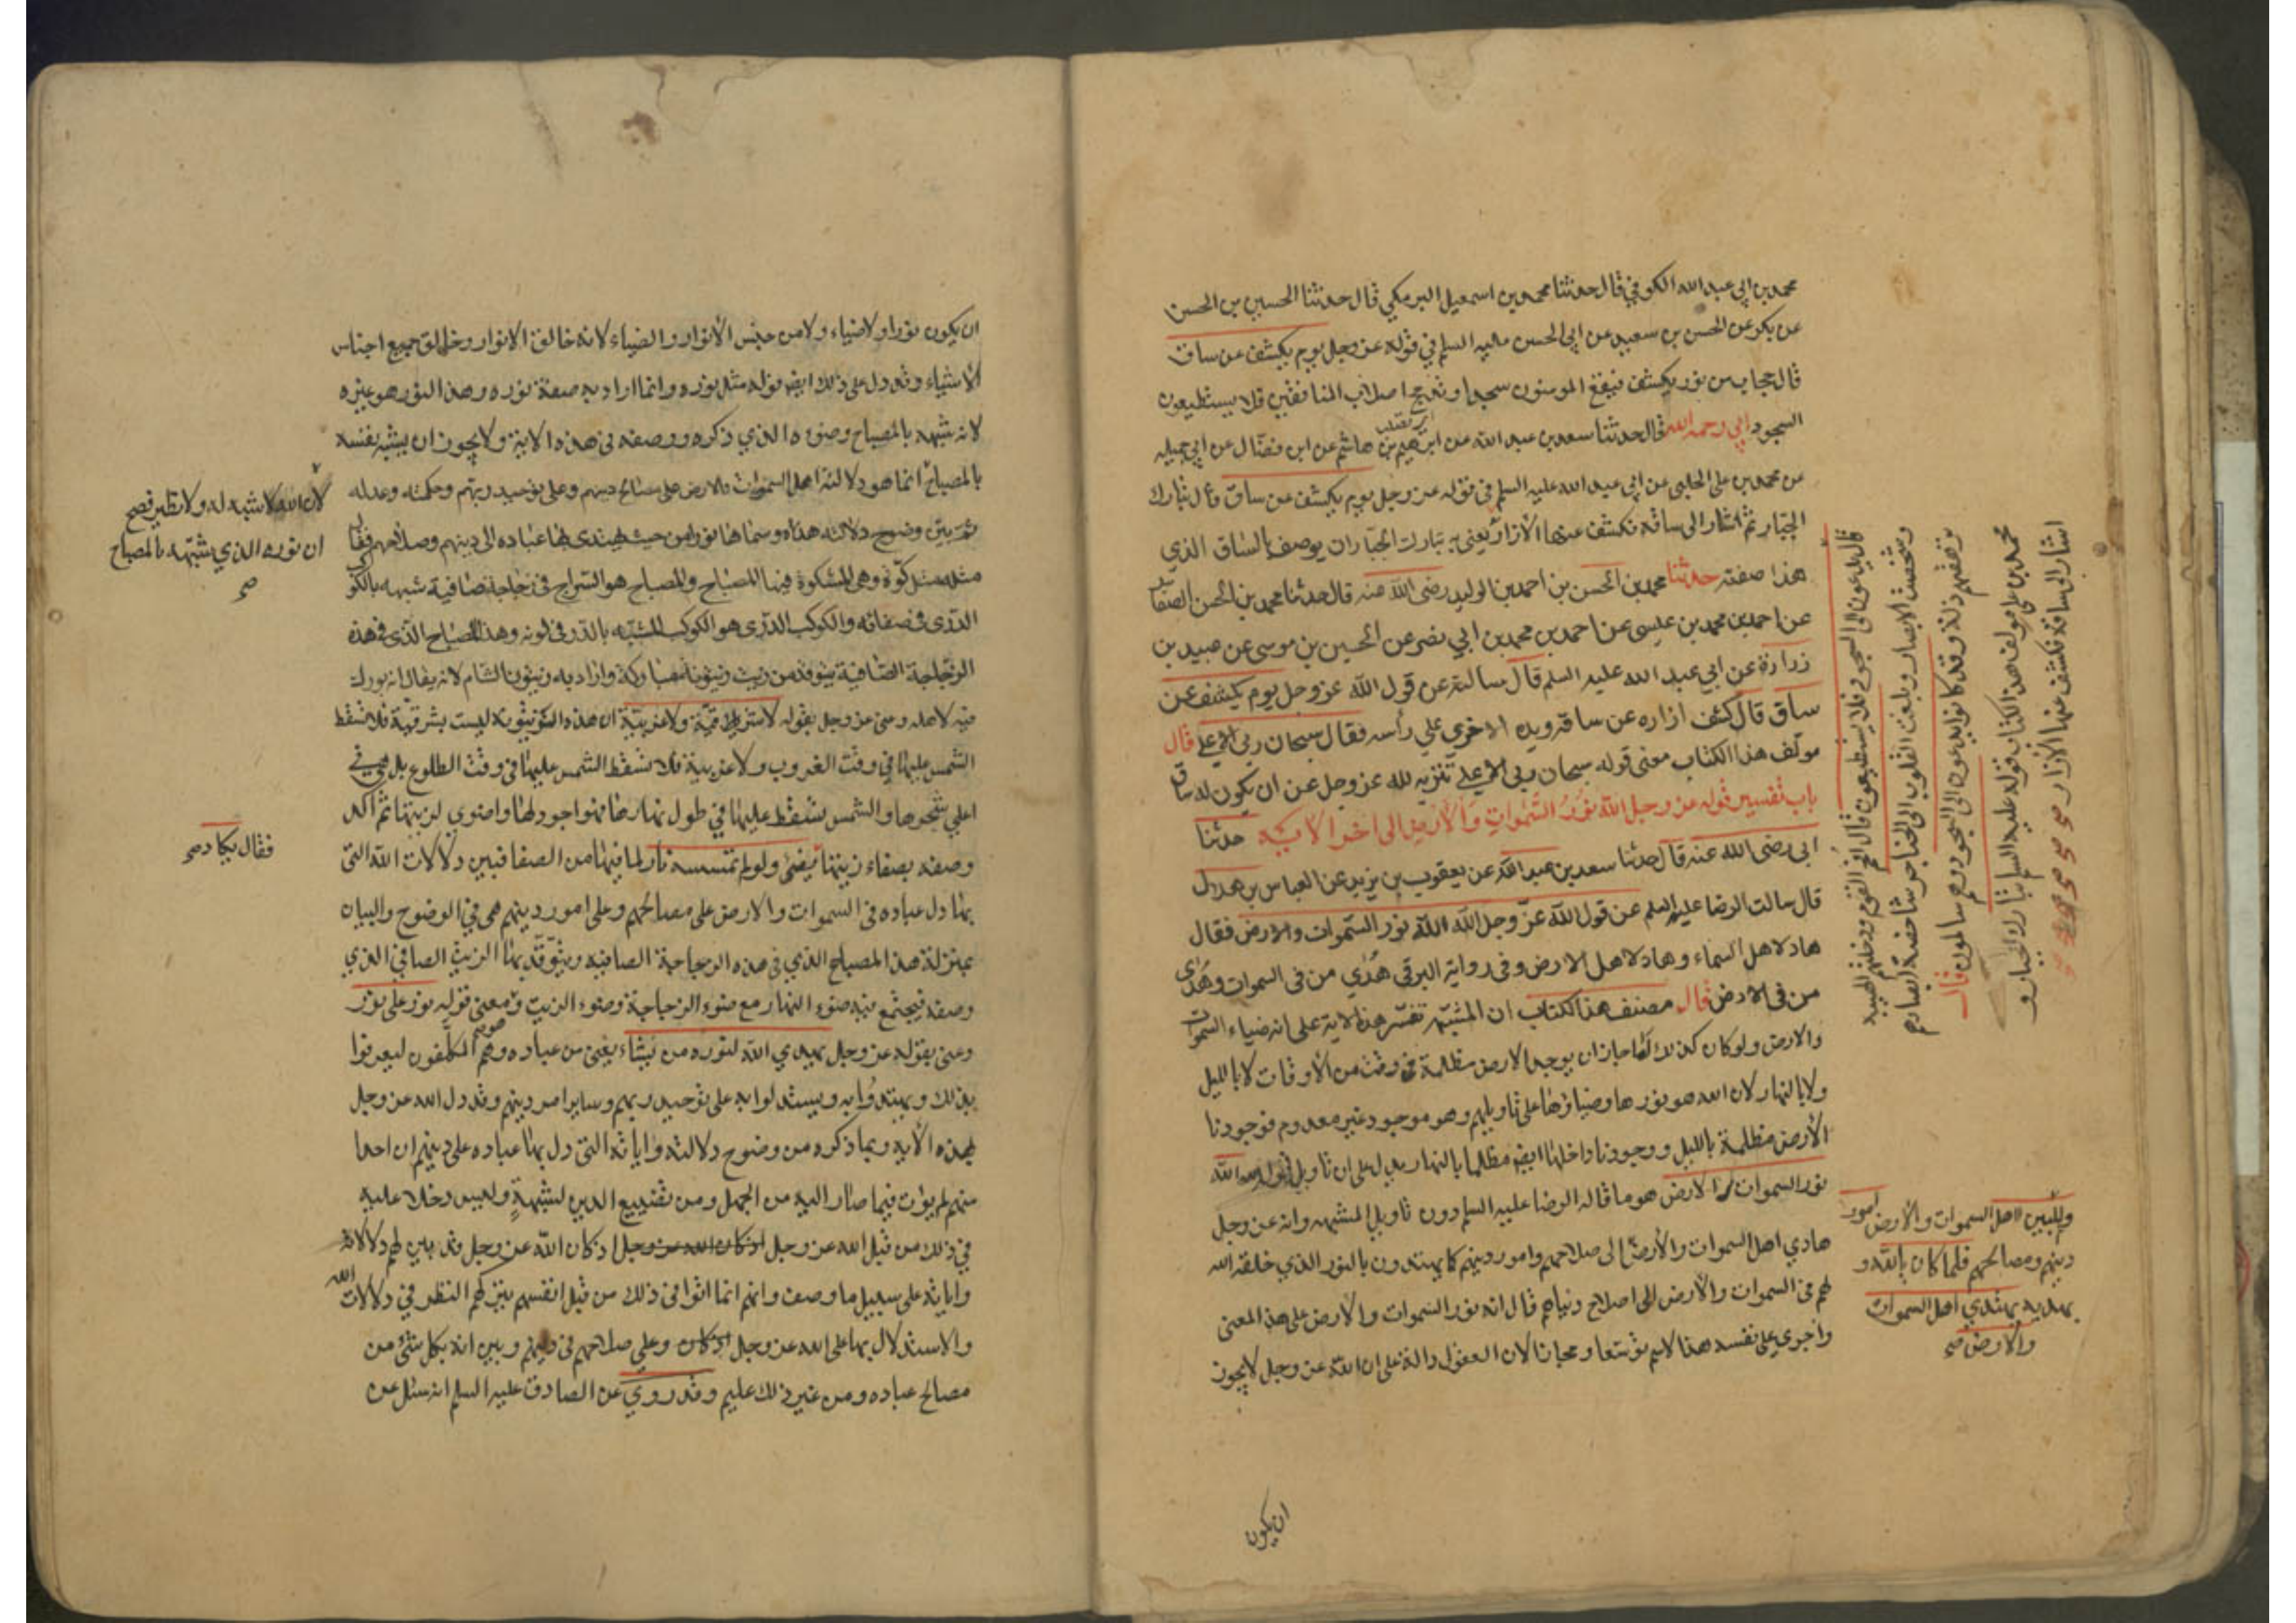 محمد بن ابي عبد الله الكوفي قال حدثنا محمد بن اسمعيل البرمكي قال حدثنا الحسين بن الحسن
عن بكر عن الحسن بن سعيد عن ابي الحسن عليه السلم في قوله عز وجل يوم يكشف عن ساق
قال حجاب من نور يكشف فيقع المومنون سجدا وتدمج اصلاب المنافقين فلا يستطيعون
السجود ابي رحمه الله قال حدثنا سعد بن عبد الله عن ابرهيم بن هاشم عن ابن فضال عن ابي جميله
عن محمد بن علي الحلبي عن ابي عبد الله عليه السلم في قوله عز وجل يوم يكشف عن ساق قال تبارك
الجبار ثم اشار الى ساقه فكشف عنها الأزار يعني به تبارك الجبار ان يوصف بالساق الذي
هذا صفته حدثنا محمد بن الحسن بن احمد بن الوليد رضى الله عنه قال حدثنا محمد بن الحسن الصفار
عن احمد بن محمد بن عيسى عن احمد بن محمد بن ابي نصر عن الحسين بن موسى عن عبيد بن
زرارة عن ابي عبد الله عليه السلم قال سالته عن قول الله عز وجل يوم يكشف عن
ساق قال كشف ازاره عن ساقه ويده الاخرى علي رأسه فقال سبحان ربي الاعلى قال
مولف هذا الكتاب معنى قوله سبحان ربي الاعلى تنزيه لله عز وجل عن ان يكون له ساق
باب تفسير قوله عز وجل الله نور السموات والارض الى اخر الاية حدثنا
ابي رضى الله عنه قال حدثنا سعد بن عبد الله عن يعقوب بن يزيد عن العباس بن هلال
قال سالت الرضا عليه السلم عن قول الله عز وجل الله نور السموات والارض فقال
هاد لاهل السماء وهاد لاهل الارض وفي رواية البرقي هدى من في السموات وهدى
من في الارض قال مصنف هذا الكتاب ان المشبهه تفسر هذه الاية على انه ضياء السموات
والارض ولو كان كذلك لما جاز ان يوجد الارض مظلمة في وقت من الأوقات لا بالليل
ولا بالنهار لان الله هو نورها وضياؤها على تاويلهم وهو موجود غير معدوم فوجودنا
الأرض مظلمة بالليل ووجودنا داخلها ايضا مظلما بالنهار يدل على ان تاويل قوله الله
نور السموات والارض هو ما قاله الرضا عليه السلم دون تاويل المشبهه وانه عز وجل
هادي اهل السموات والأرض الى صلاحهم وامور دينهم كما يهتدون بالنور الذي خلقه الله
لهم في السموات والأرض الى اصلاح دنياهم قال انه نور السموات والأرض على هذا المعنى
واجرى على نفسه هذا الاسم توسعا ومجازا لان العقول دالة على ان الله عز وجل لا يجوز
ان يكون
قال يدعون الى السجود فلا يستطيعون قال القوم ودخلتهم الهيبة
وشخصت الابصار وبلغت القلوب الى الحناجر شاخصة ابصارهم
ترهقهم ذلة وقد كانوا يدعون الى السجود وهم سالمون قال
محمد بن علي مولف هذا الكتاب قوله عليه السلم تبارك الجبار و
اشار الى ساقه فكشف عنها الأزار صح
والمبين لاهل السموات والأرض امور
دينهم ومصالحهم فلما كان بالله و
بهديه يهتدي اهل السموات
والارض صح
ان يكون نورا ولا ضياء ولا من جنس الأنوار والضياء لانه خالق الانوار وخالق جميع اجناس
الأشياء وقد دل على ذلك ايضا قوله مثل نوره وانما اراد به صفة نوره وهذا النور هو غيره
لانه شبهه بالمصباح وضوءه الذي ذكره ووصفه في هذه الاية ولا يجوز ان يشبه نفسه
بالمصباح انما هو دلالته اهل السموات والارض على مصالح دينهم وعلى توحيد ربهم وحكمته وعدله
ثم بين وضوح دلالته هذه وسماها نورا من حيث يهتدى بها عباده الى دينهم وصلاحهم فقال
مثله مثل كوة وهي المشكوة فيها المصباح والمصباح هو السراج في زجاجة صافية شبيهه بالكوكب
الدري في صفائه والكوكب الدري هو الكوكب المشبه بالدر في لونه وهذا المصباح الذي في هذه
الزجاجة الصافية يتوقد من زيت زيتونة مباركة واراد به زيتون الشام لانه يقال انه بورك
فيه لاهله وعنى عز وجل بقوله لا شرقية ولا غربية ان هذه الزيتونة ليست بشرقية فلا تسقط
الشمس عليها في وقت الغروب ولا غربية فلا تسقط الشمس عليها في وقت الطلوع بل هي في
اعلى شجرها والشمس تسقط عليها في طول نهارها فهو اجود لها واضوى لزيتها ثم اكد
وصفه بصفاء زيتها يضئ ولو لم تمسسه نار لما فيها من الصفا فبين دلالات الله التي
بها دل عباده في السموات والارض على مصالحهم وعلى امور دينهم هي في الوضوح والبيان
بمنزلة هذا المصباح الذي في هذه الزجاجة الصافيه ويتوقد بها الزيت الصافي الذي
وصفه فيجتمع فيه ضوء النهار مع ضوء الزجاجة وضوء الزيت ومعنى قوله نور على نور
وعنى بقوله عز وجل يهدي الله لنوره من يشاء يعني من عباده وهم المكلفون ليعرفوا
بذلك ويهتدوا به ويستدلوا به على توحيد ربهم وساير امور دينهم وقد دل الله عز وجل
بهذه الأية وبما ذكره من وضوح دلالته واياته التي دل بها عباده على دينهم ان احدا
منهم لم يؤت فيما صار اليه من الجهل ومن تضييع الدين لشبهة ولبس دخلا عليه
في ذلك من قبل الله عز وجل اذ كان الله عز وجل اذ كان الله عز وجل قد بين لهم دلالاته
واياته على سبيل ما وصف وانهم انما اتوا في ذلك من قبل انفسهم بتركهم النظر في دلالات الله
والاستدلال بها على الله عز وجل وعلى صلاحهم في دينهم وبين انه بكل شئ من
مصالح عباده ومن غير ذلك عليم وقد روي عن الصادق عليه السلم انه سئل عن
لان الله لا شبه له ولا نظير فصح
ان نوره الذي شبهه بالمصباح
صح
فقال يكاد صح